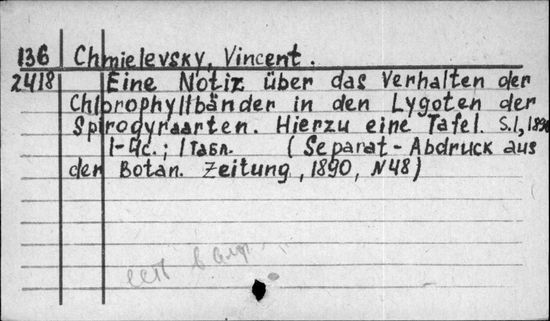 136 Chmielevsky, Vincent.
2418 Eine Notiz über das Verhalten der
Chlorophyllbänder in den Lygoten der
Spirogyraarten. Hierzu eine Tafel. S.l, 1890
1-4c.; 1 табл. (Separat-Abdruck aus
der Botan. Zeitung, 1890, N48)
есть в